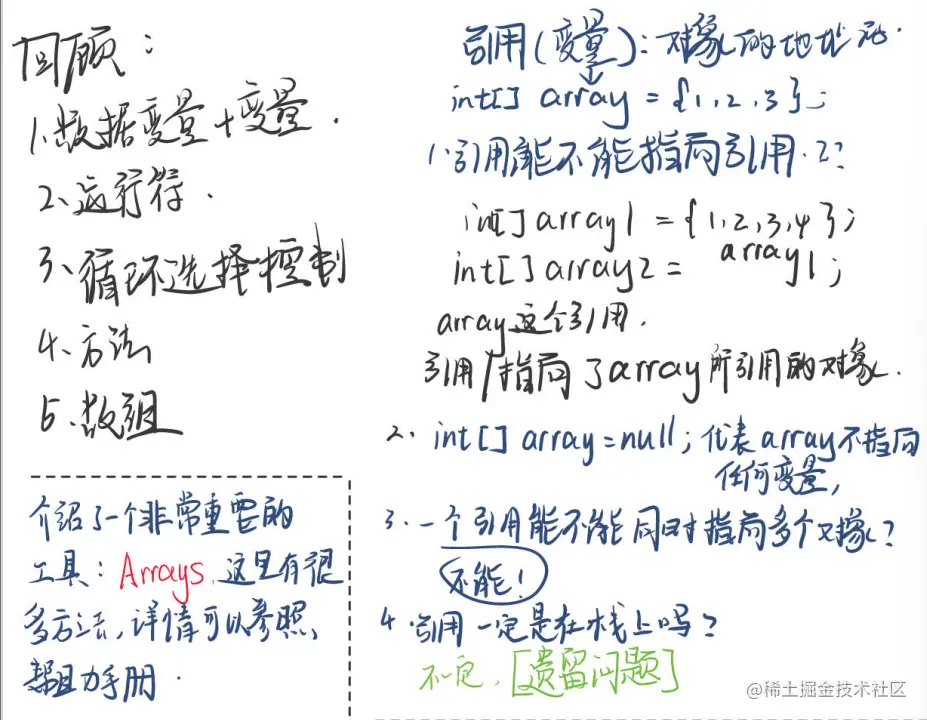 回顾：
1.数据变量+变量.
2、运行符.
3、循环选择控制
4、方法
5、数组
介绍了一个非常重要的
工具：Arrays,这里有很
多方法,详情可以参照
帮助手册.
引用(变量)：对象的地址
int[] array = {1,2,3};
1.引用能不能指向引用.2?
int[] array1 = {1,2,3,4};
int[] array2 = array1;
array这个引用.
引用/指向了array所引用的对象.
2. int[] array=null;代表array不指向
任何变量,
3.一个引用能不能同时指向多个对象?
不能!
4.引用一定是在栈上吗?
不一定,[遗留问题]
@稀土掘金技术社区